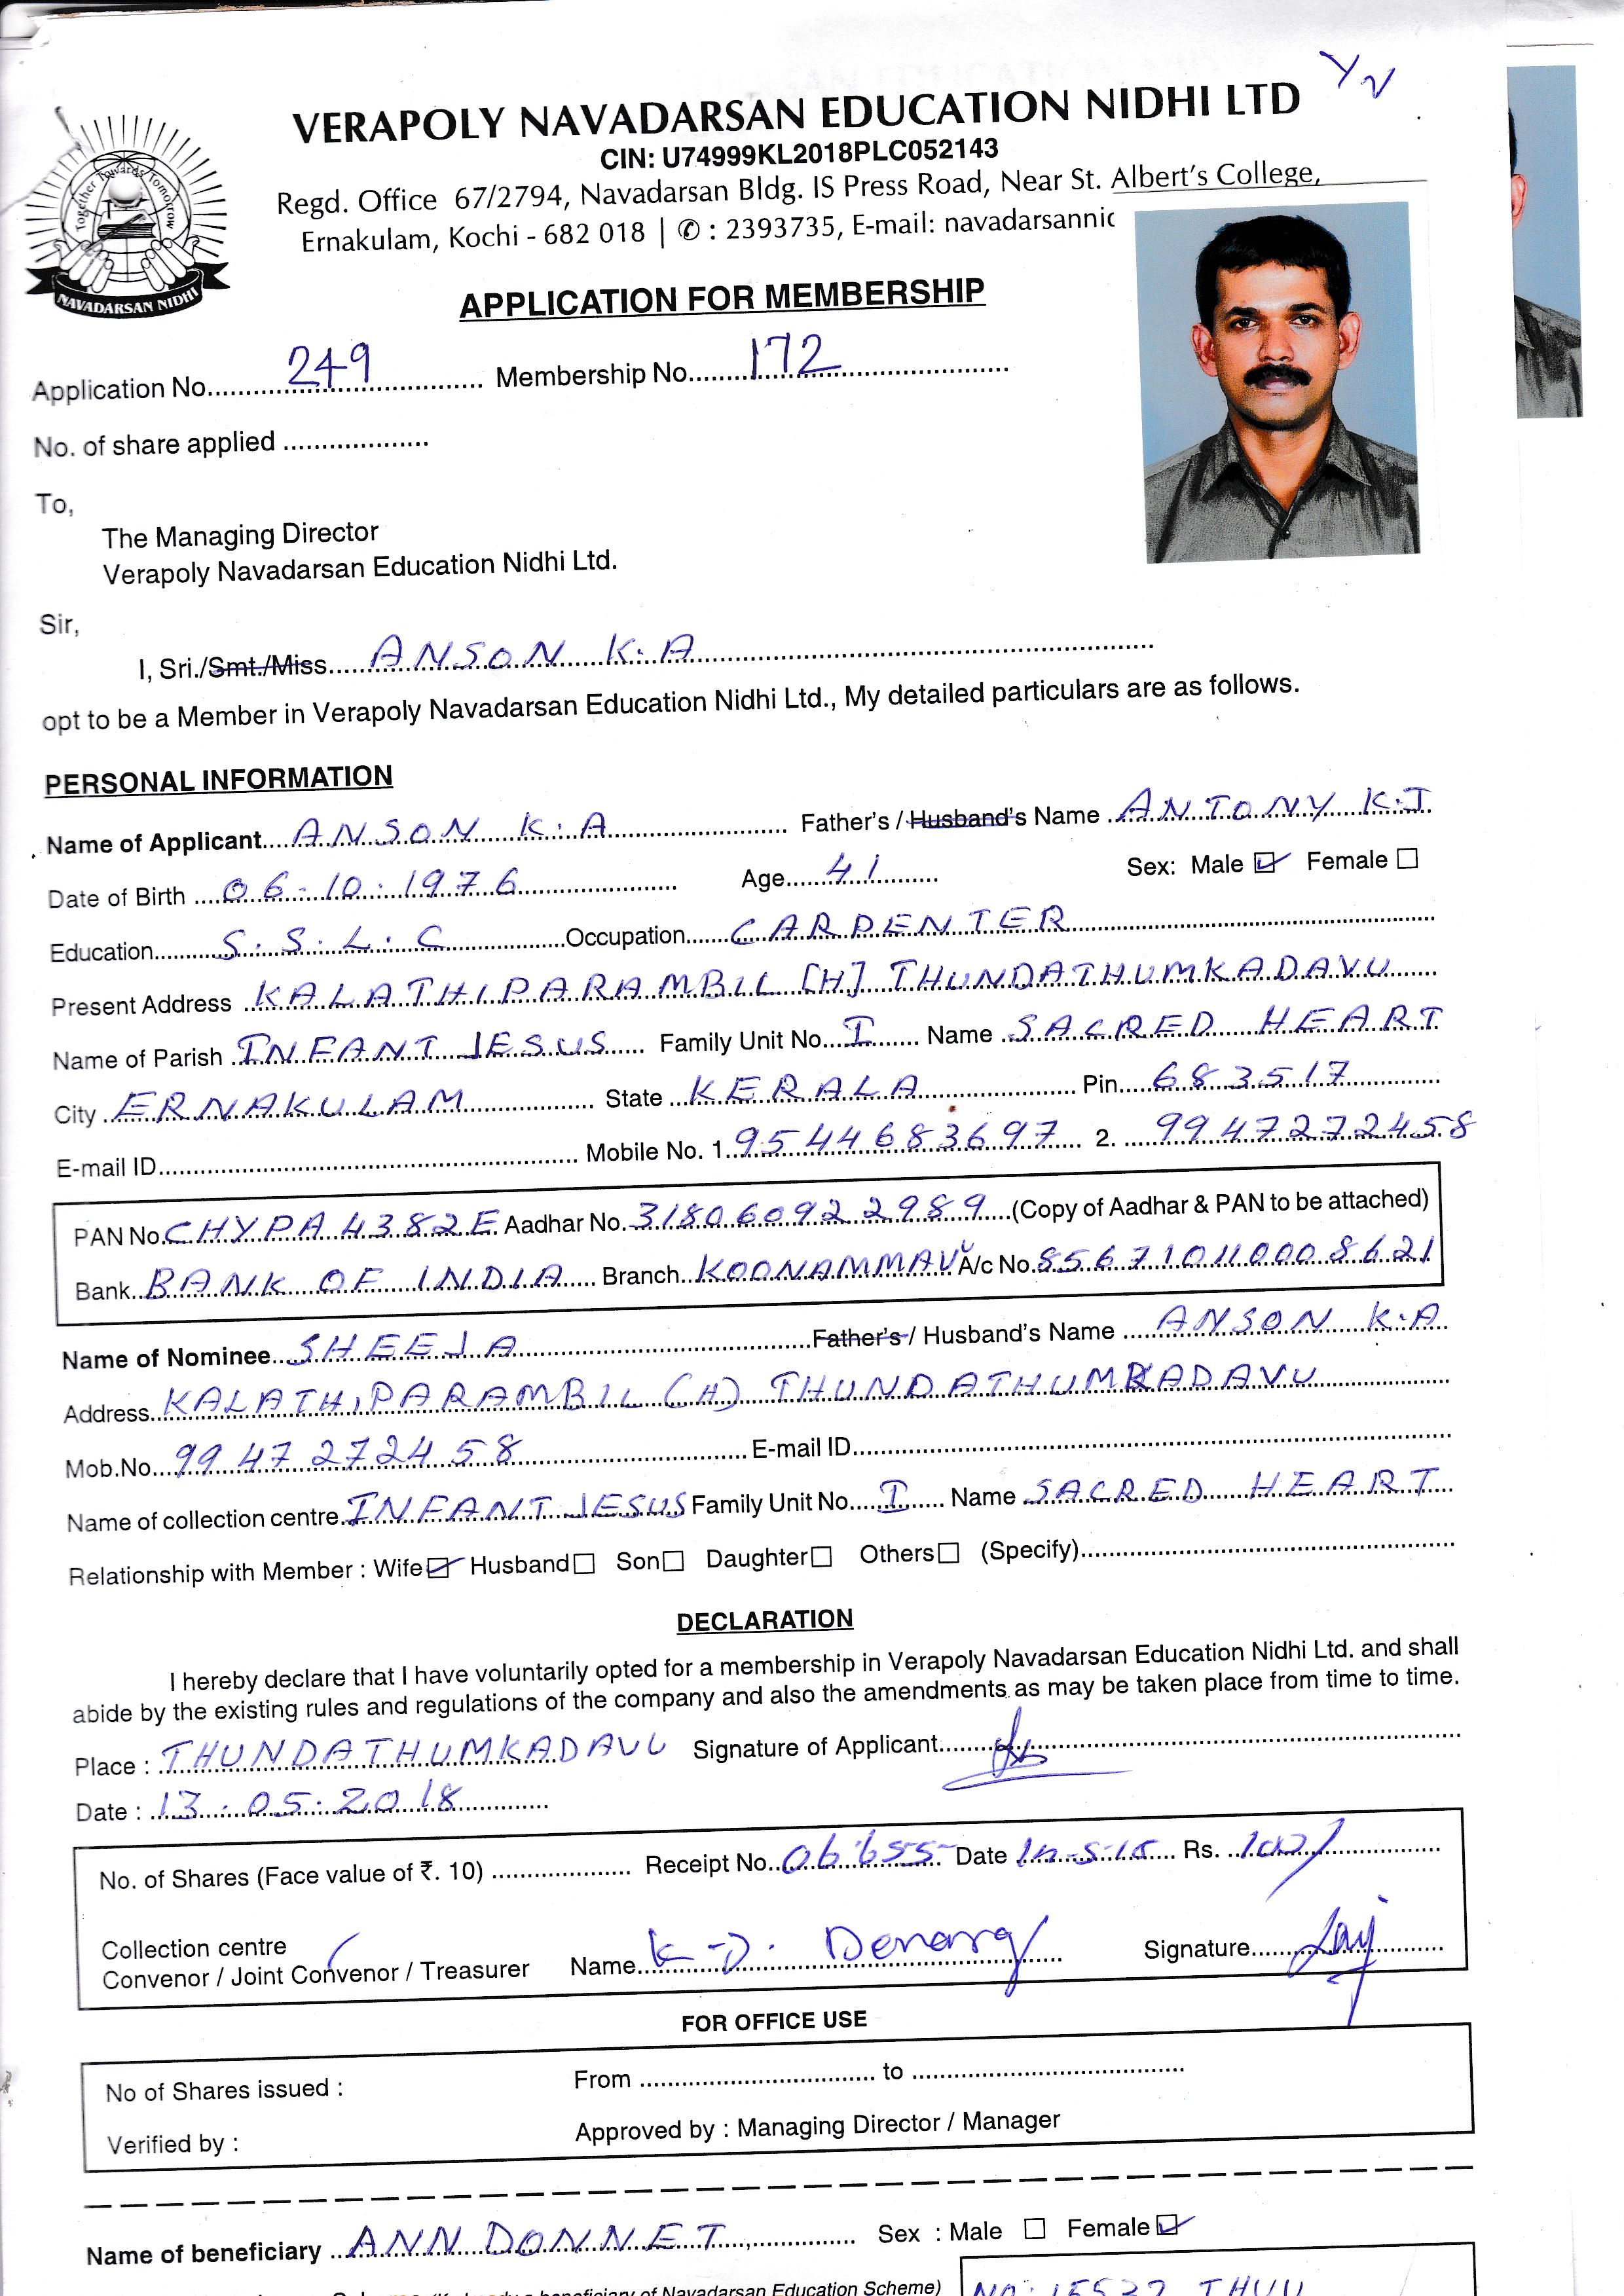 Y N
VERAPOLY NAVADARSAN EDUCATION NIDHI LTD
CIN: U74999KL2018PLC052143
Regd. Office 67/2794, Navadarsan Bldg. IS Press Road, Near St. Albert's College,
Ernakulam, Kochi - 682 018 | ✆ : 2393735, E-mail: navadarsannic
Together Towards Tomorrow
NAVADARSAN NIDHI
APPLICATION FOR MEMBERSHIP
Application No. 249 Membership No. 172
No. of share applied
To,
The Managing Director
Verapoly Navadarsan Education Nidhi Ltd.
Sir,
I, Sri./Smt./Miss ANSON K.A
opt to be a Member in Verapoly Navadarsan Education Nidhi Ltd., My detailed particulars are as follows.
PERSONAL INFORMATION
Name of Applicant ANSON K.A Father's / Husband's Name ANTONY K.J
Date of Birth 06-10-1976 Age 41 Sex: Male ☑ Female ☐
Education S.S.L.C Occupation CARPENTER
Present Address KALATHIPARAMBIL [H] THUNDATHUMKADAVU
Name of Parish INFANT JESUS Family Unit No. I Name SACRED HEART
City ERNAKULAM State KERALA Pin 683517
E-mail ID Mobile No. 1. 9544683697 2. 9947272458
PAN No. CHYPA4382E Aadhar No. 318060922989 (Copy of Aadhar & PAN to be attached)
Bank BANK OF INDIA Branch KOONAMMAVU A/c No. 856710110008621
Name of Nominee SHEEJA Father's / Husband's Name ANSON K.A
Address KALATHIPARAMBIL (H) THUNDATHUMKADAVU
Mob.No. 9947272458 E-mail ID
Name of collection centre INFANT JESUS Family Unit No. I Name SACRED HEART
Relationship with Member : Wife ☑ Husband ☐ Son ☐ Daughter ☐ Others ☐ (Specify)
DECLARATION
I hereby declare that I have voluntarily opted for a membership in Verapoly Navadarsan Education Nidhi Ltd. and shall
abide by the existing rules and regulations of the company and also the amendments as may be taken place from time to time.
Place : THUNDATHUMKADAVU Signature of Applicant
Date : 13.05.2018
No. of Shares (Face value of ₹. 10) Receipt No. 06655 Date Rs. 100/
Collection centre
Convenor / Joint Convenor / Treasurer Name K.D. Signature
FOR OFFICE USE
No of Shares issued : From to
Verified by : Approved by : Managing Director / Manager
Name of beneficiary ANN DONNET Sex : Male ☐ Female ☑
beneficiary of Navadarsan Education Scheme)